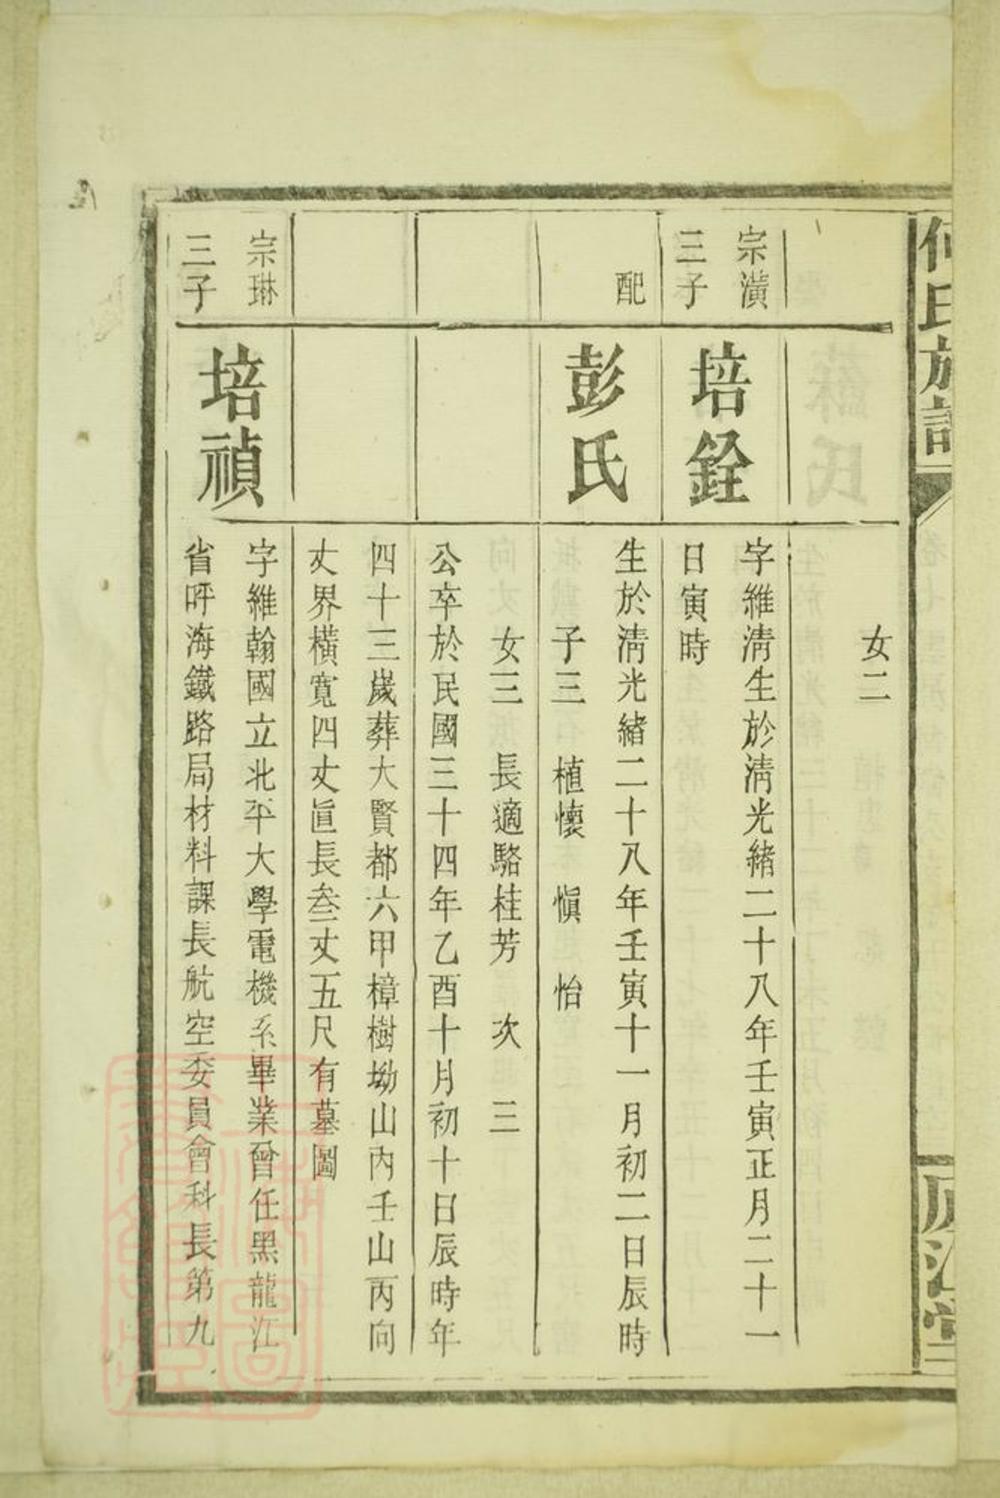 何氏族譜
廬江堂
女二
宗潢
三子
培銓
字維淸生於淸光緒二十八年壬寅正月二十一
日寅時
配
彭氏
生於淸光緒二十八年壬寅十一月初二日辰時
子三 植懷 愼 怡
女三 長適駱桂芳 次 三
公卒於民國三十四年乙酉十月初十日辰時年
四十三歲葬大賢都六甲樟樹坳山內壬山丙向
丈界橫寬四丈直長叁丈五尺有墓圖
宗琳
三子
培禎
字維翰國立北平大學電機系畢業曾任黑龍江
省呼海鐵路局材料課長航空委員會科長第九